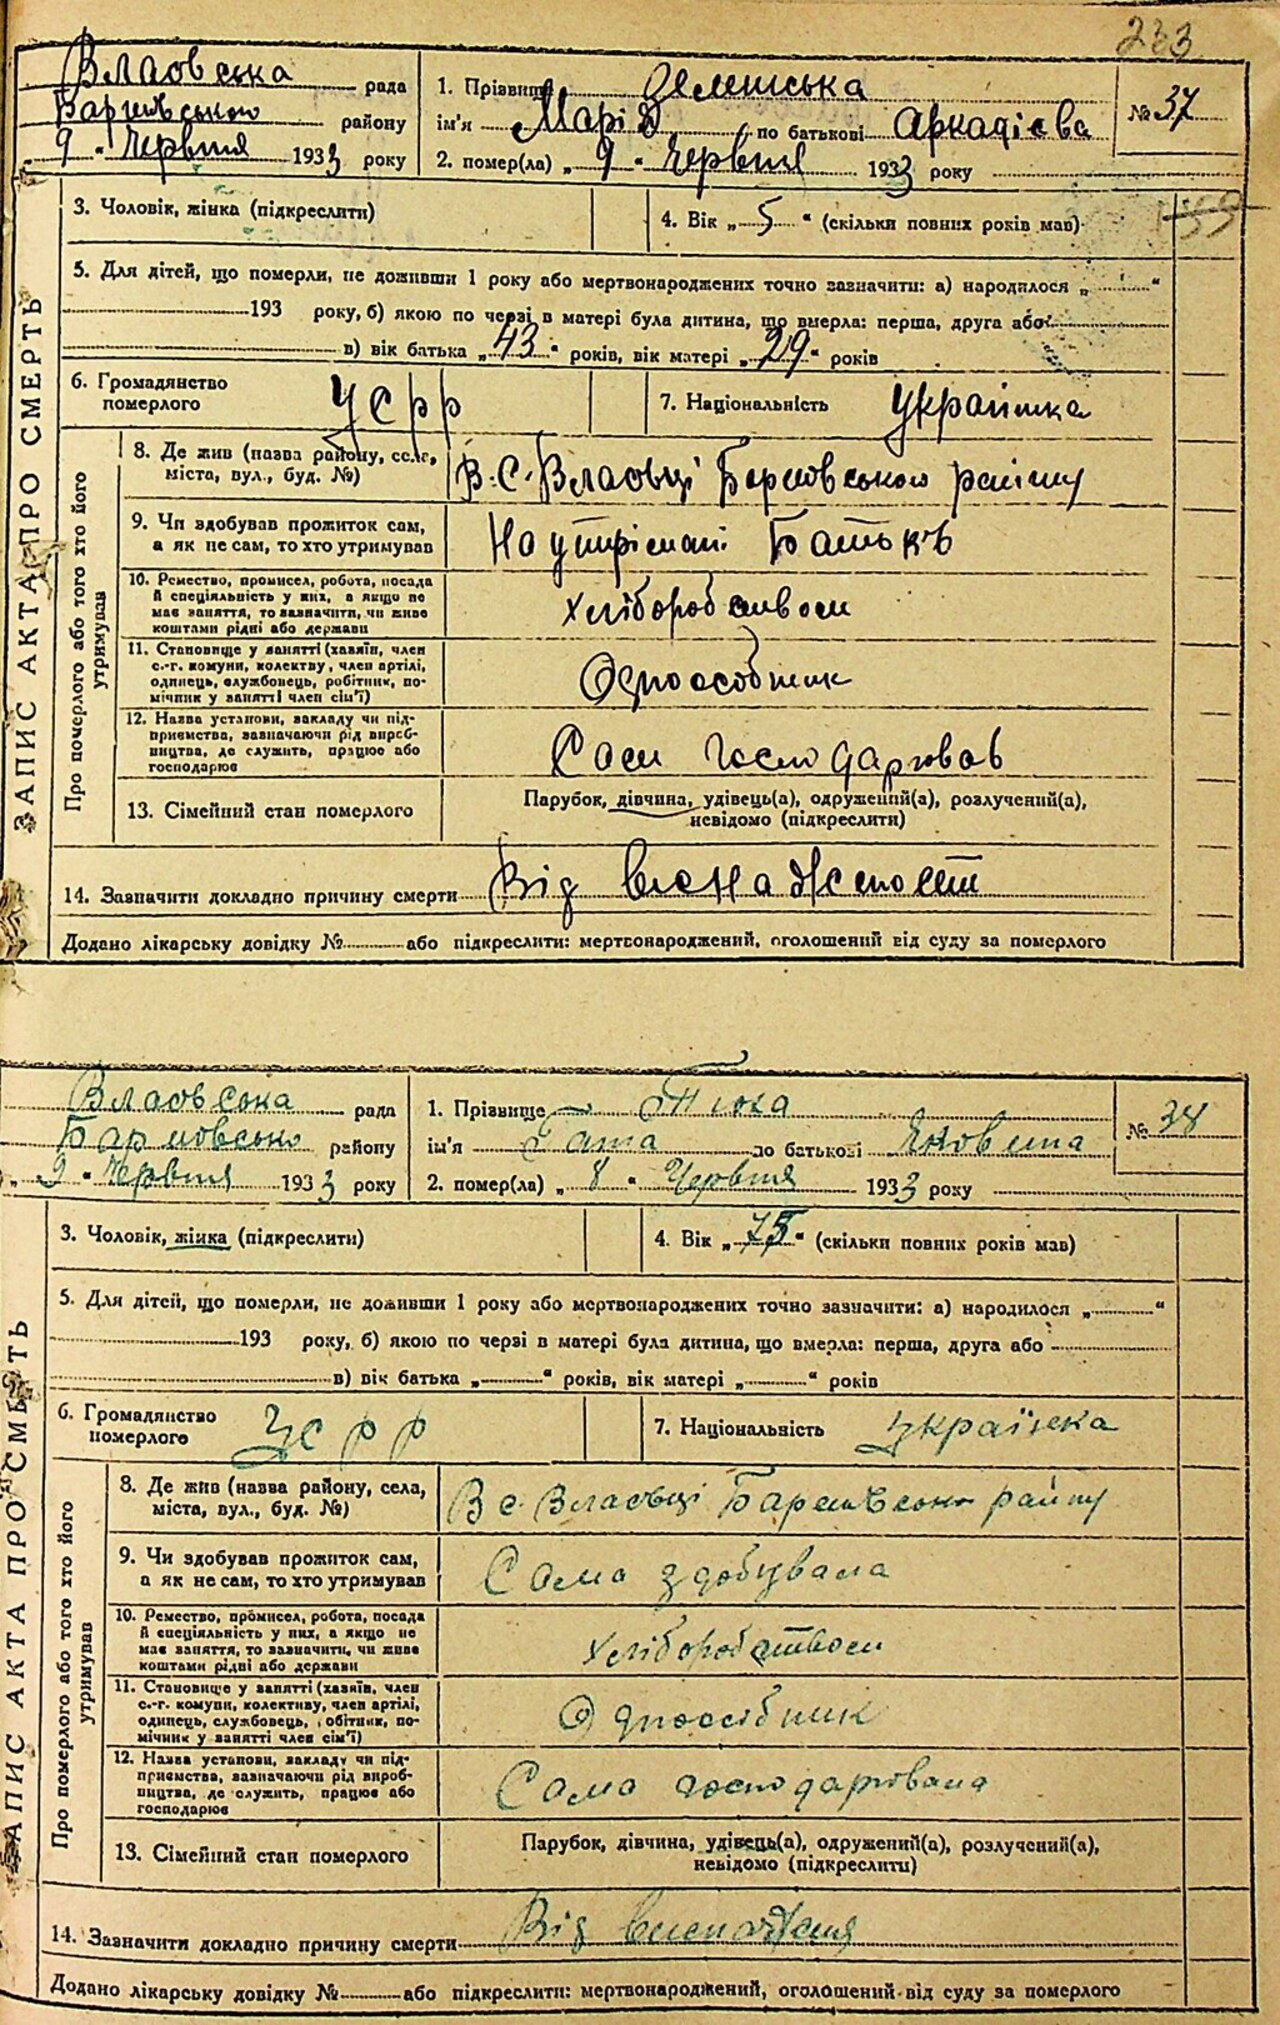 233
Власовська рада
Баришівського району
„ 9 " Червня 1933 року
1. Прізвище
ім'я Марія по батькові Аркадієва
2. помер(ла) „ 9 " Червня 1933 року
№ 37
3. Чоловік, жінка (підкреслити)
4. Вік „ 5 " (скільки повних років мав)
ЗАПИС АКТА ПРО СМЕРТЬ
5. Для дітей, що померли, не доживши 1 року або мертвонароджених точно зазначити: а) народилося „ "
193 року, б) якою по черзі в матері була дитина, що вмерла: перша, друга або
в) вік батька „ 43 " років, вік матері „ 29 " років
6. Громадянство
померлого
УСРР
7. Національність Українка
Про померлого або того хто його
утримував
8. Де жив (назва району, села,
міста, вул., буд. №)
В. С. Власовці району
9. Чи здобував прожиток сам,
а як не сам, то хто утримував
На утрімані Батьків
10. Ремество, промисел, робота, посада
й спеціяльність у них, а якщо не
має заняття, то зазначити, чи живе
коштами рідні або держави
Хліборобством
11. Становище у занятті (хазяїн, член
с.-г. комуни, колективу, член артілі,
одинець, службовець, робітник, по-
мічник у занятті член сім'ї)
Одноособник
12. Назва установи, закладу чи під-
приємства, зазначаючи рід вироб-
ництва, де служить, працює або
господарює
Сам господарював
13. Сімейний стан померлого
Парубок, дівчина, удівець(а), одружений(а), розлучений(а),
невідомо (підкреслити)
14. Зазначити докладно причину смерти Від
Додано лікарську довідку № або підкреслити: мертвонароджений, оголошений від суду за померлого
Власовська рада
району
„ 9 " Червня 1933 року
1. Прізвище
ім'я по батькові Яковина
2. помер(ла) „ 8 " Червня 1933 року
№ 38
3. Чоловік, жінка (підкреслити)
4. Вік „ 75 " (скільки повних років мав)
ЗАПИС АКТА ПРО СМЕРТЬ
5. Для дітей, що померли, не доживши 1 року або мертвонароджених точно зазначити: а) народилося „ "
193 року, б) якою по черзі в матері була дитина, що вмерла: перша, друга або
в) вік батька „ " років, вік матері „ " років
6. Громадянство
померлого
УСРР
7. Національність Українка
Про померлого або того хто його
утримував
8. Де жив (назва району, села,
міста, вул., буд. №)
В с. Власовці району
9. Чи здобував прожиток сам,
а як не сам, то хто утримував
Сама здобувала
10. Ремество, промисел, робота, посада
й спеціяльність у них, а якщо не
має заняття, то зазначити, чи живе
коштами рідні або держави
Хліборобством
11. Становище у занятті (хазяїн, член
с.-г. комуни, колективу, член артілі,
одинець, службовець, робітник, по-
мічник у занятті член сім'ї)
Одноосібник
12. Назва установи, закладу чи під-
приємства, зазначаючи рід вироб-
ництва, де служить, працює або
господарює
Сама господарювала
13. Сімейний стан померлого
Парубок, дівчина, удівець(а), одружений(а), розлучений(а),
невідомо (підкреслити)
14. Зазначити докладно причину смерти Від виснаження
Додано лікарську довідку № або підкреслити: мертвонароджений, оголошений від суду за померлого